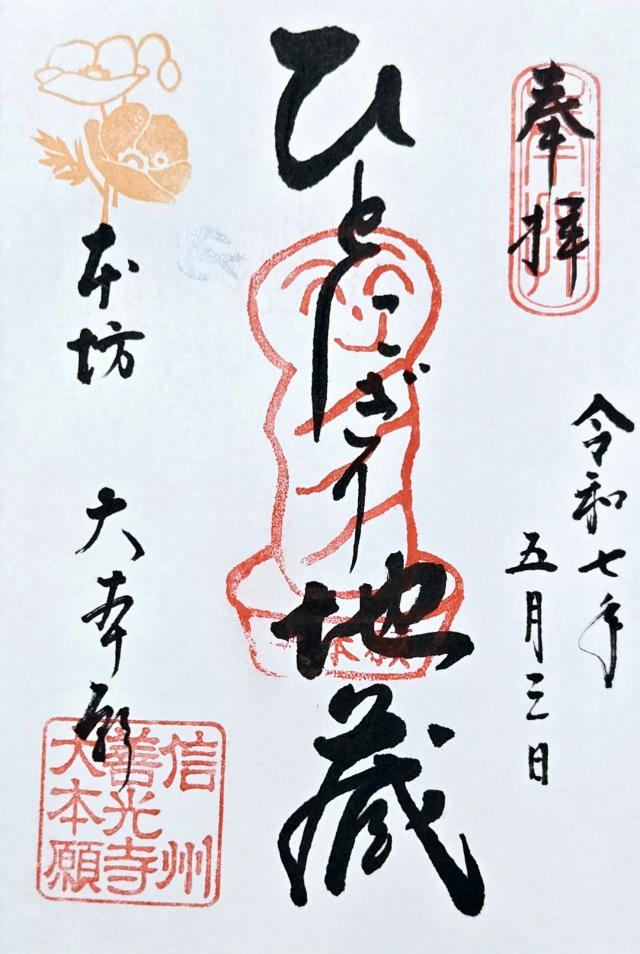 奉拝
奉拝
令和七年
五月三日
ひとにぎり地蔵
本願
本坊
大本願
信州
善光寺
大本願